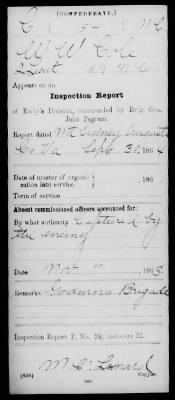 (CONFEDERATE.)
C 54 N C
W W Cole
2 Lieut 54 N C
Appears on an
Inspection Report
of Early's Division, commanded by Brig. Gen.
John Pegram.
Report dated Mt Sidney Augusta
Co Va Sept 30, 186
Date of master of organi-
zation into service 186
Term of service
Absent commissioned officers accounted for:
By what authority Captured by
the enemy
Date Nov 7, 1863.
Remarks: Godwins Brigade
Inspection Report P. No. 24; inclosure 21.
Copyist.